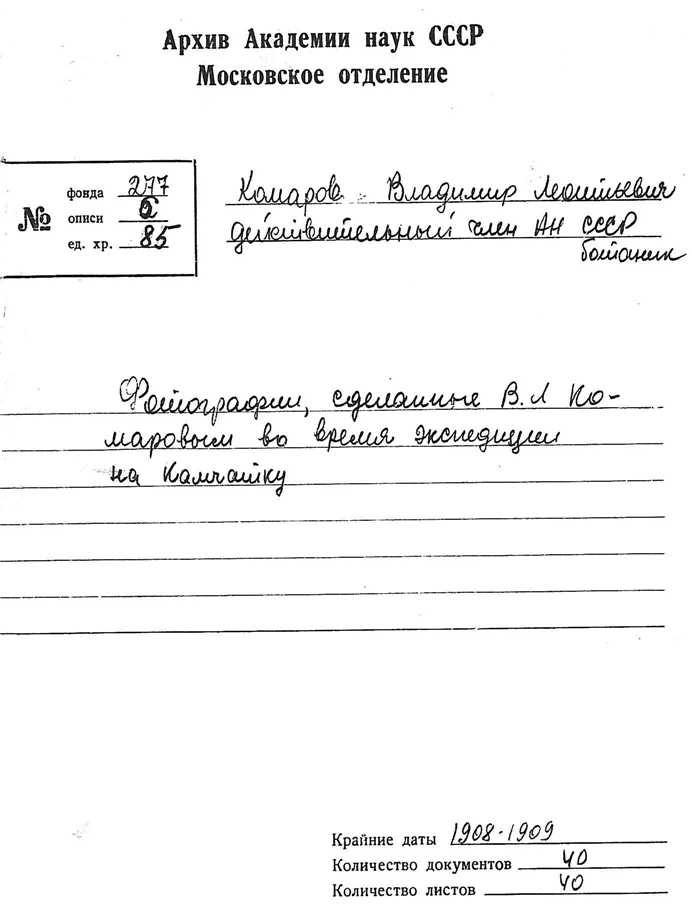 Архив Академии наук СССР
Московское отделение
№
фонда 277
описи
ед. хр. 85
Комаров Владимир Леонтьевич
действительный член АН СССР
ботаник
Фотографии, сделанные В.Л Ко-
маровым во время экспедиции
на Камчатку
Крайние даты 1908-1909
Количество документов 40
Количество листов 40